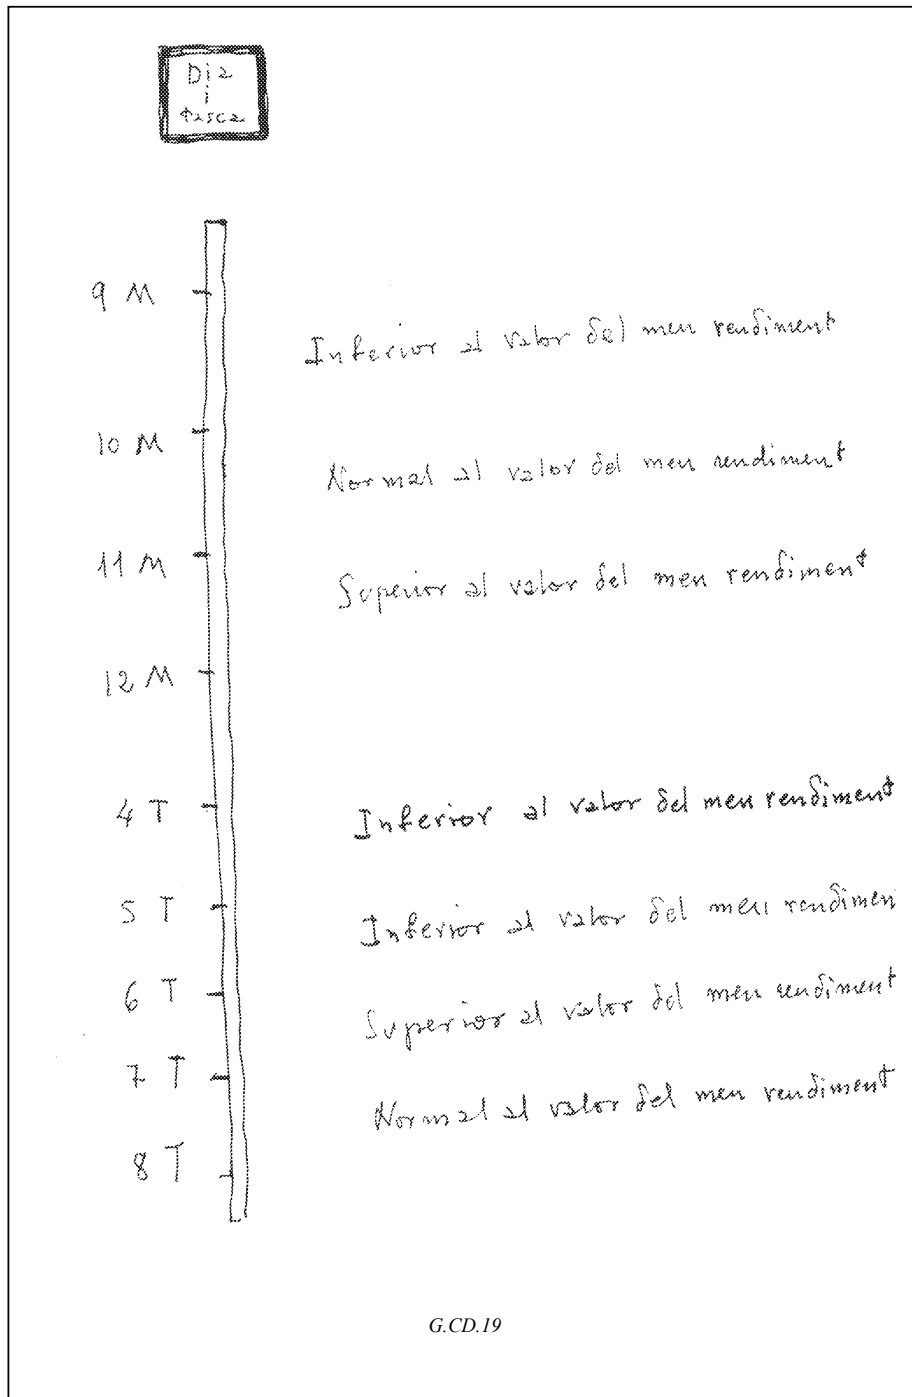 Dia
i
tasca
9 M
Inferior al valor del meu rendiment
10 M
Normal al valor del meu rendiment
11 M
Superior al valor del meu rendiment
12 M
4 T
Inferior al valor del meu rendiment
5 T
Inferior al valor del meu rendimen
6 T
Superior al valor del meu rendiment
7 T
Normal al valor del meu rendiment
8 T
G.CD.19